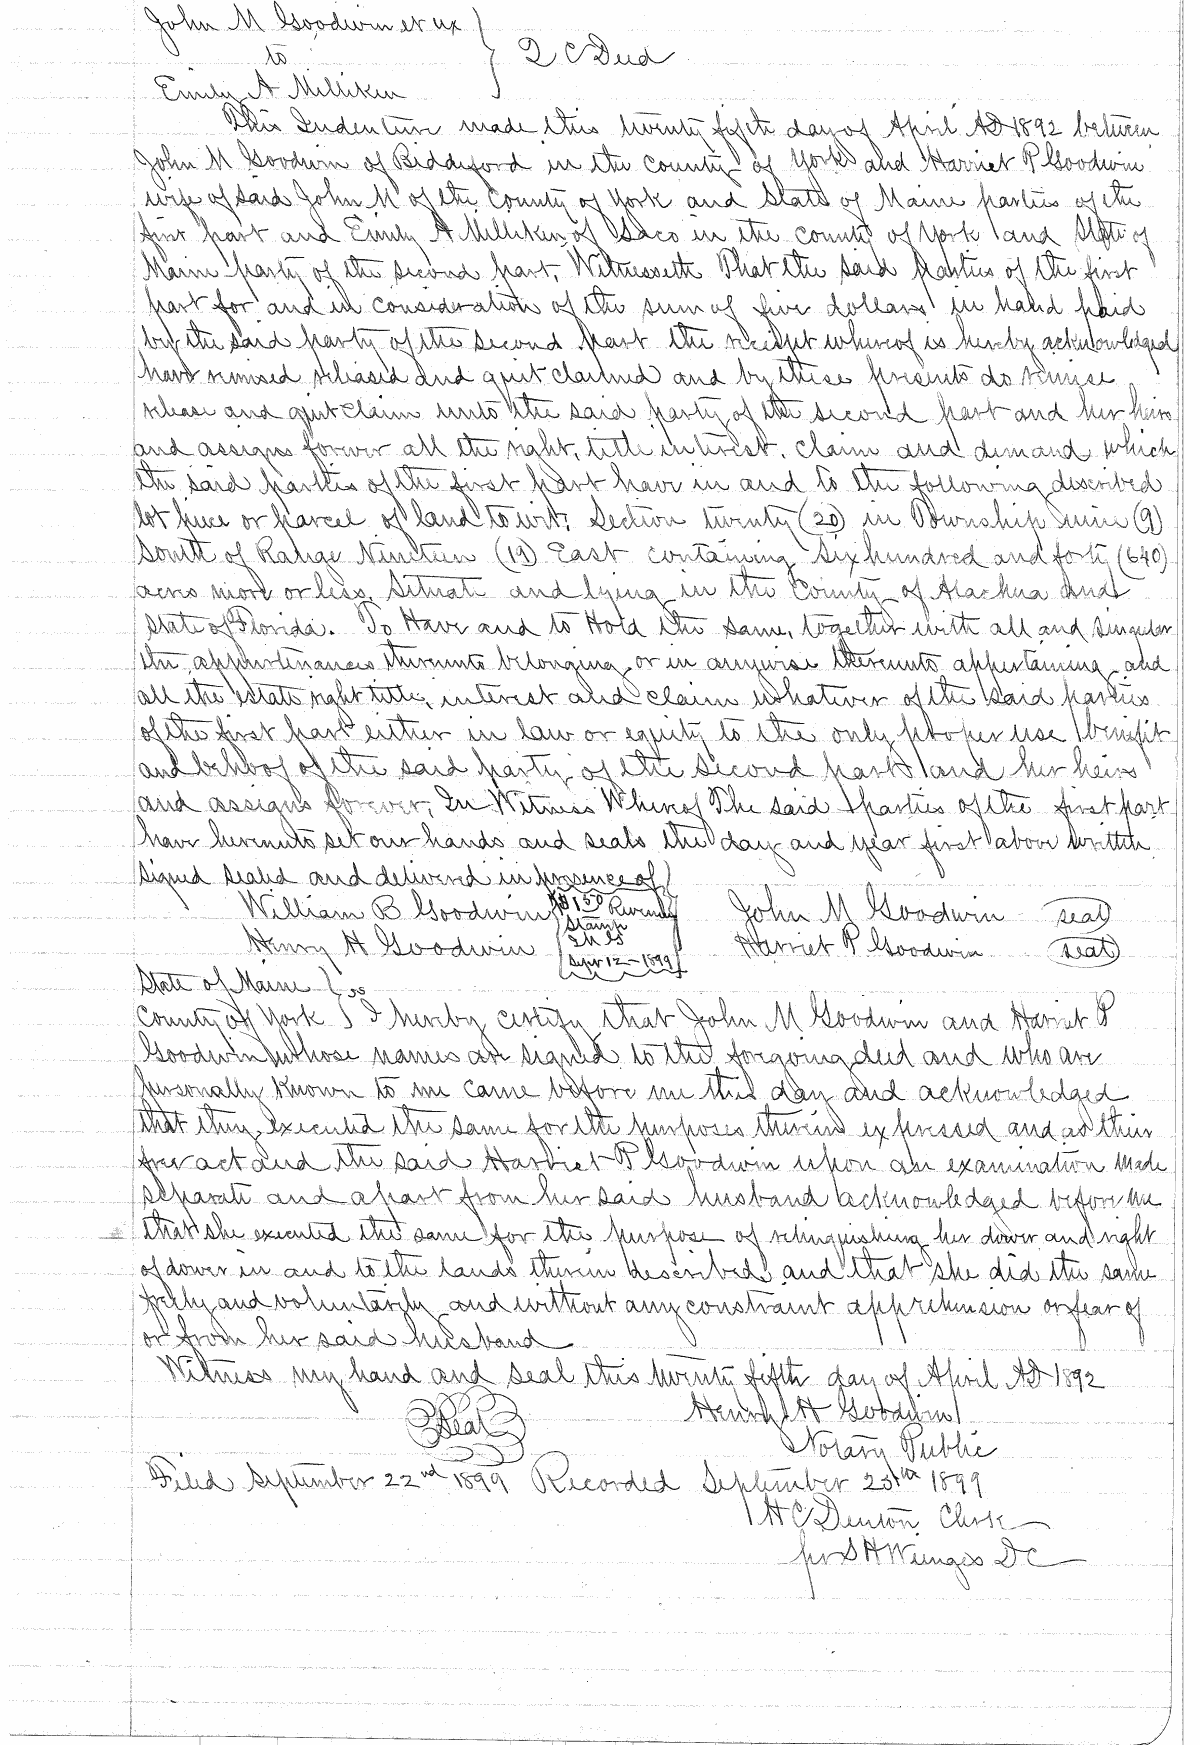 John M Goodwin et ux
to
Emily A Milliken
Q C Deed
This Indenture made this twenty fifth day of April AD 1892 between
John M Goodwin of Biddeford in the county of York and Harriet P Goodwin
wife of said John M of the County of York and State of Maine parties of the
first part and Emily A Milliken of Saco in the county of York and State of
Maine party of the second part, Witnesseth That the said parties of the first
part for and in consideration of the sum of five dollars in hand paid
by the said party of the second part the receipt whereof is hereby acknowledged
have remised released and quit claimed and by these presents do remise
release and quit claim unto the said party of the second part and her heirs
and assigns forever all the right, title interest, claim and demand which
the said parties of the first part have in and to the following described
lot piece or parcel of land to wit; Section twenty (20) in Township nine (9)
South of Range Nineteen (19) East containing six hundred and forty (640)
acres more or less, situate and lying in the County of Alachua and
State of Florida. To Have and to Hold the same, together with all and singular
the appurtenances thereunto belonging or in anywise thereunto appertaining and
all the estate right title, interest and claim whatever of the said parties
of the first part either in law or equity to the only proper use benefit
and behoof of the said party of the second part and her heirs
and assigns forever; In Witness Whereof The said parties of the first part
have hereunto set our hands and seals the day and year first above written
Signed sealed and delivered in presence of
William B Goodwin
Henry H Goodwin
$1.50 Revenue
Stamp
Apr 12 - 1899
John M Goodwin seal
Harriet P Goodwin seal
State of Maine } ss
County of York } I hereby certify that John M Goodwin and Harriet P
Goodwin whose names are signed to the forgoing deed and who are
personally known to me came before me this day and acknowledged
that they executed the same for the purposes therein expressed and as their
free act and the said Harriet P Goodwin upon an examination made
separate and apart from her said husband acknowledged before me
that she executed the same for the purpose of relinquishing her dower and right
of dower in and to the lands therein described and that she did the same
freely and voluntarily and without any constraint apprehension or fear of
or from her said husband
Witness my hand and seal this twenty fifth day of April AD 1892
Seal
Henry H Goodwin
Notary Public
Filed September 22nd 1899 Recorded September 25th 1899
H C Denton Clerk
per S H Wienges D C